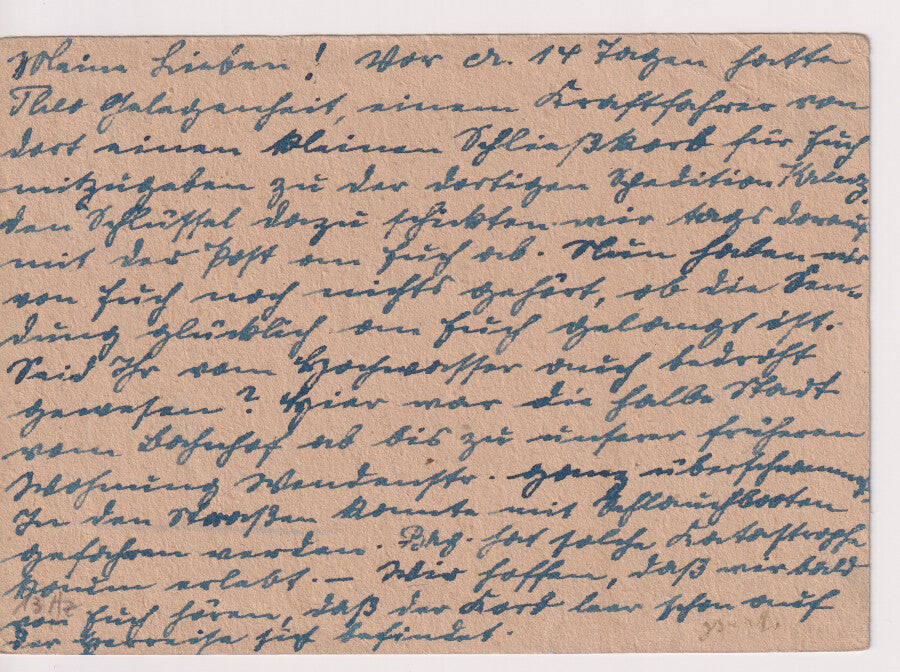 Meine Lieben! Vor ca. 14 Tagen hatte
Theo Gelegenheit, einem Kraftfahrer von
dort einen kleinen Schließkorb für Euch
mitzugeben zu der dortigen Spedition
den Schlüssel dazu schickten wir tags darauf
mit der Post an Euch ab. Nun haben wir
von Euch noch nichts gehört, ob die Sen-
dung glücklich an Euch gelangt ist.
Seid Ihr vom Hochwasser auch bedroht
gewesen? Hier war die halbe Stadt
vom Bahnhof ab bis zu unserer früheren
Wohnung Wendenstr. ganz überschwemmt.
In den Straßen konnte mit Schlauchbooten
gefahren werden. Bschg. hat solche Katastrophe
kaum erlebt. – Wir hoffen, daß wir bald
von Euch hören, daß der Korb leer schon auf
der Herreise sich befindet.